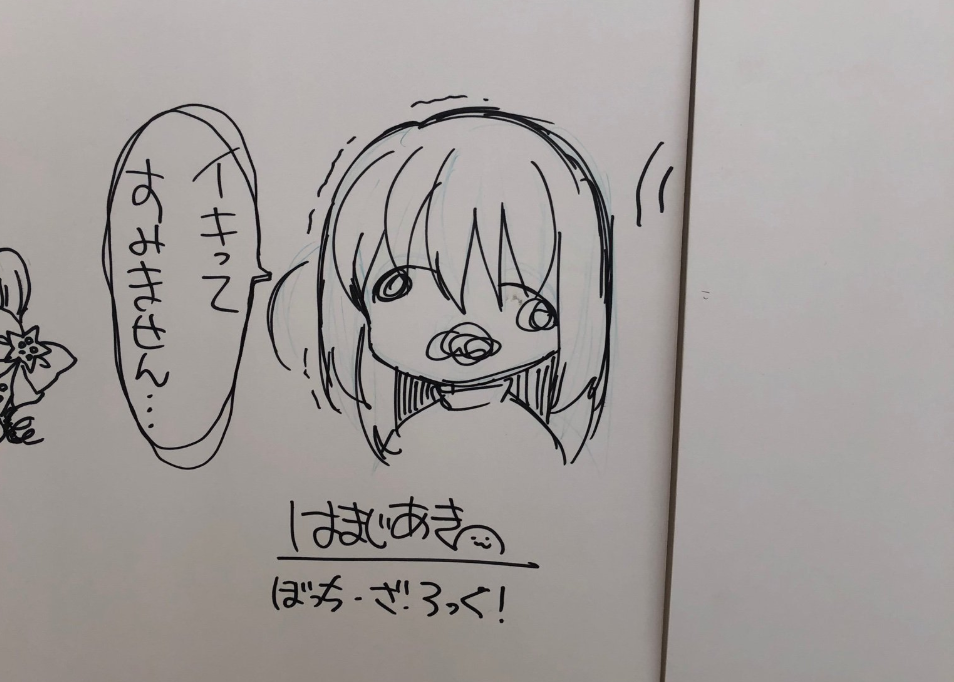 イキって
すみません…
はまじあき
ぼっち・ざ・ろっく!